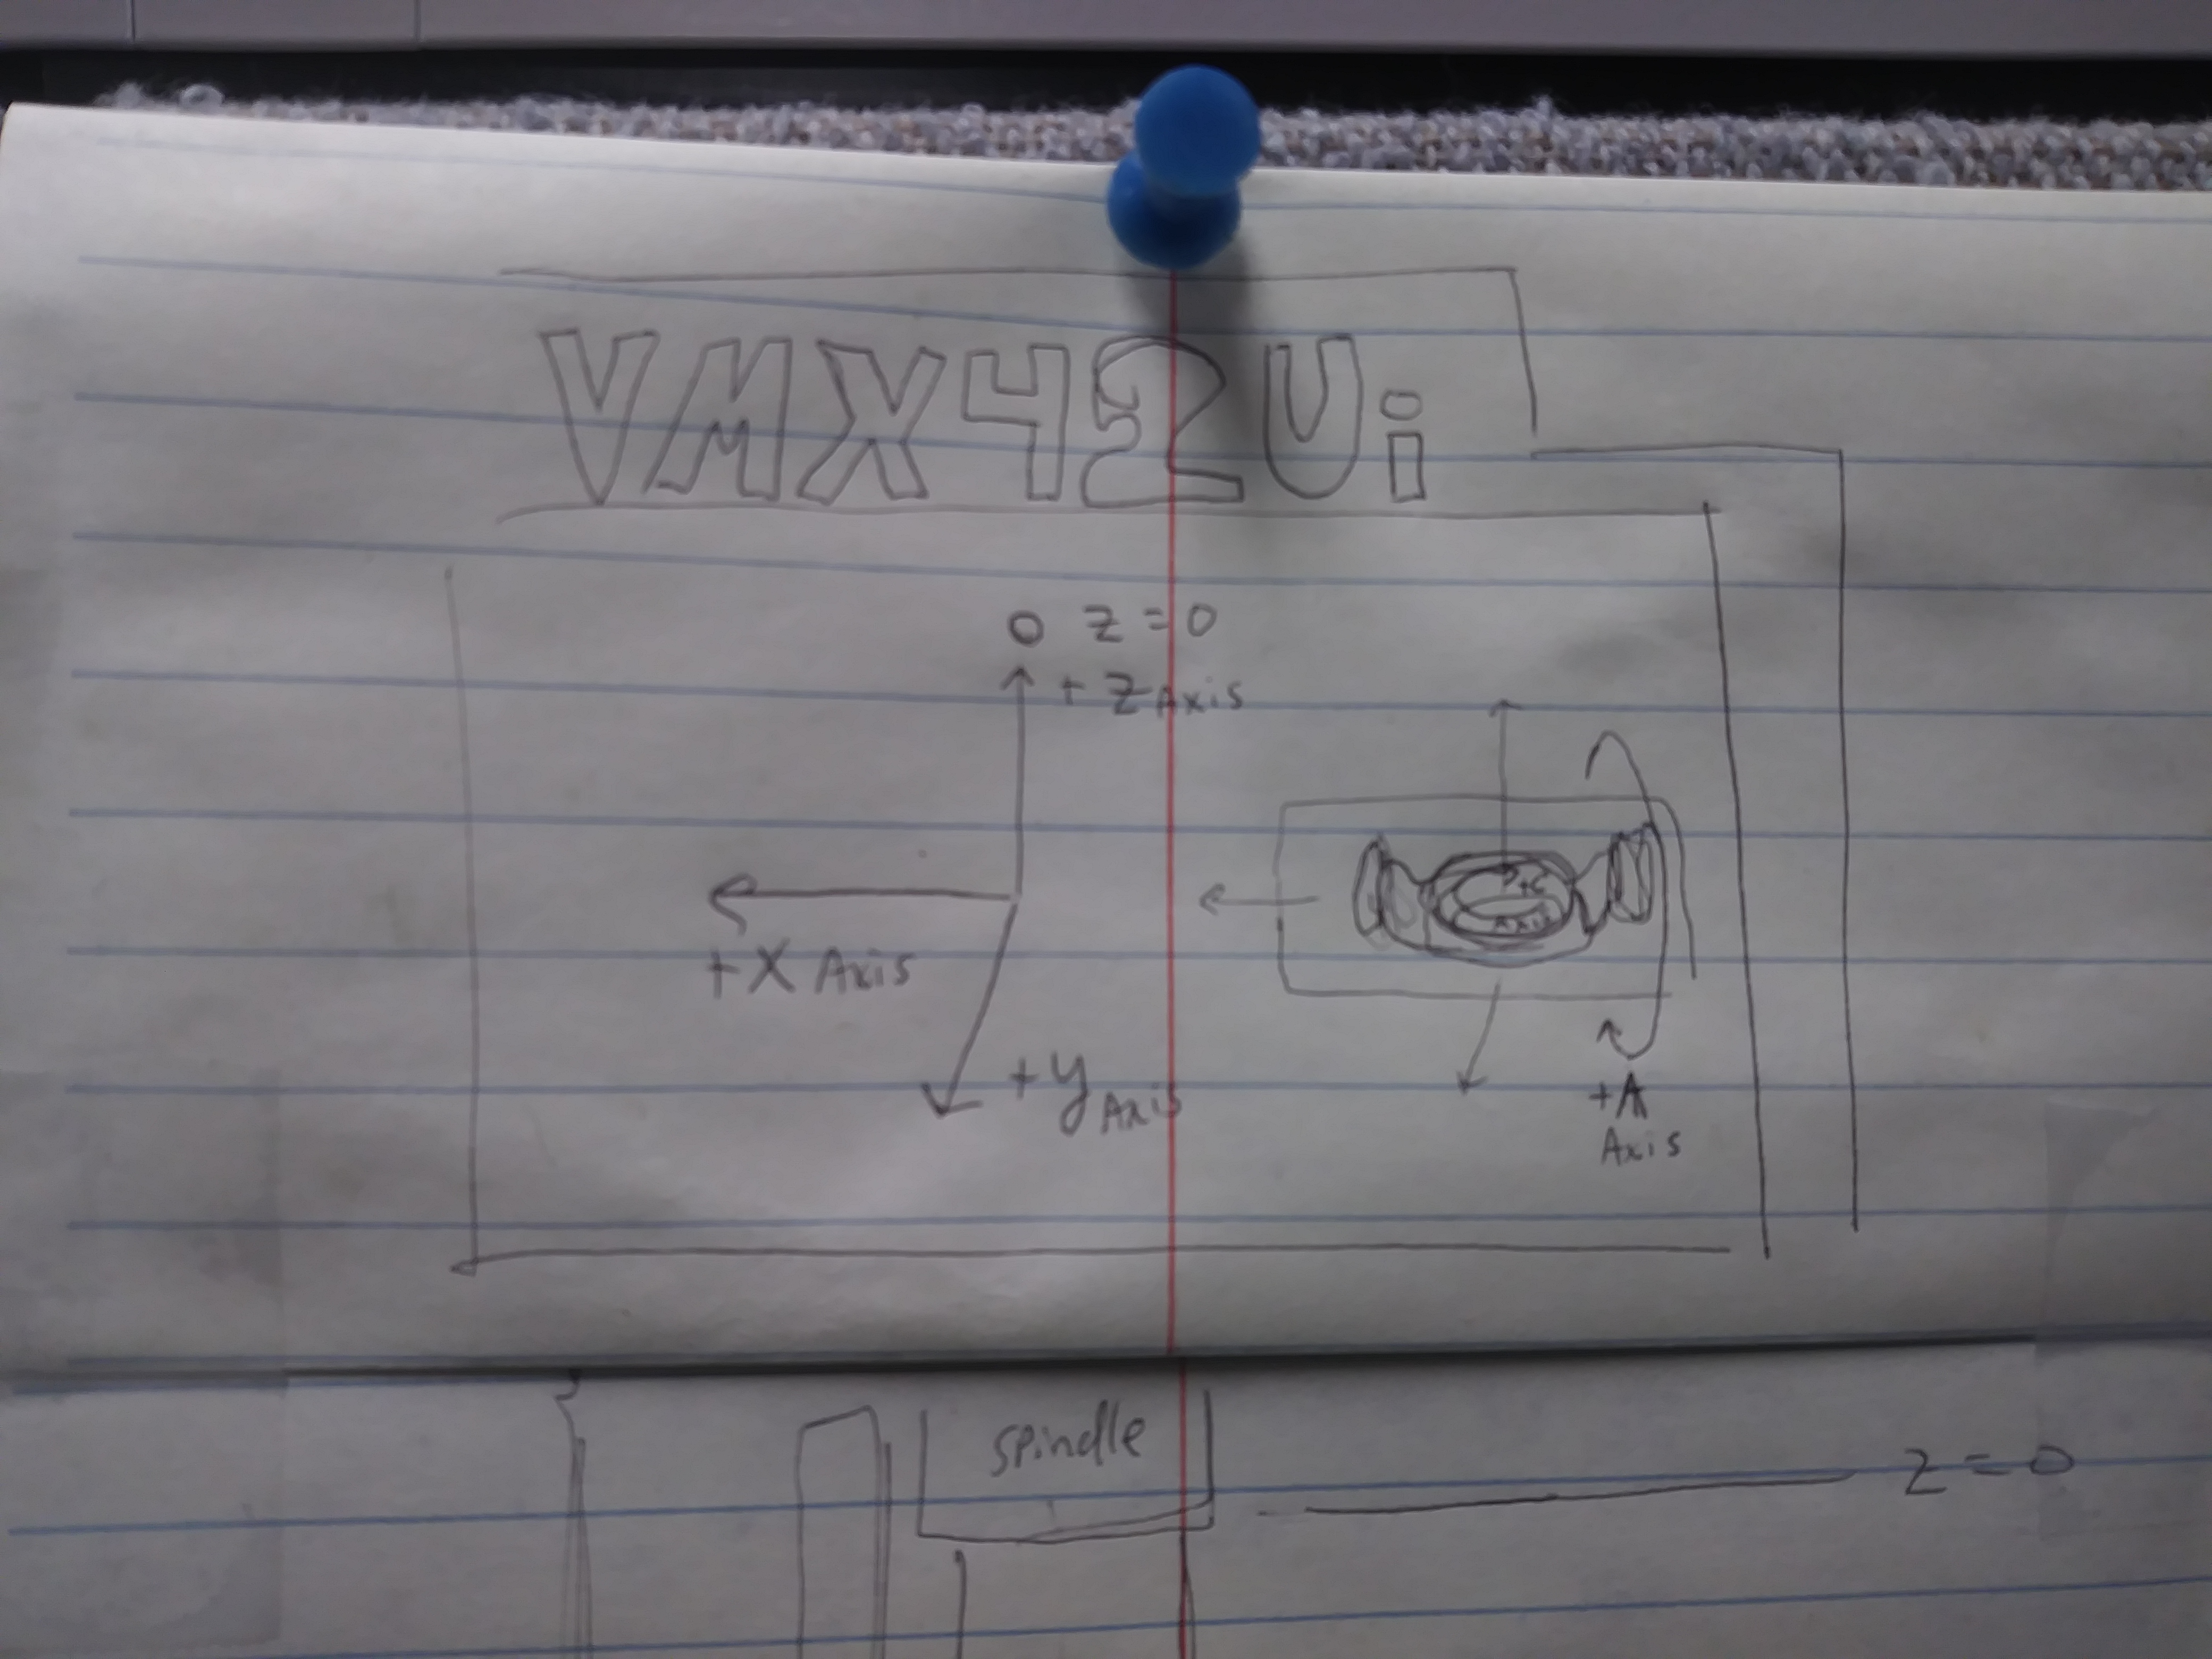 VMX42Ui
O Z=0
+ Z Axis
+X Axis
+y Axis
+C
Axis
+A
Axis
Spindle
Z=0